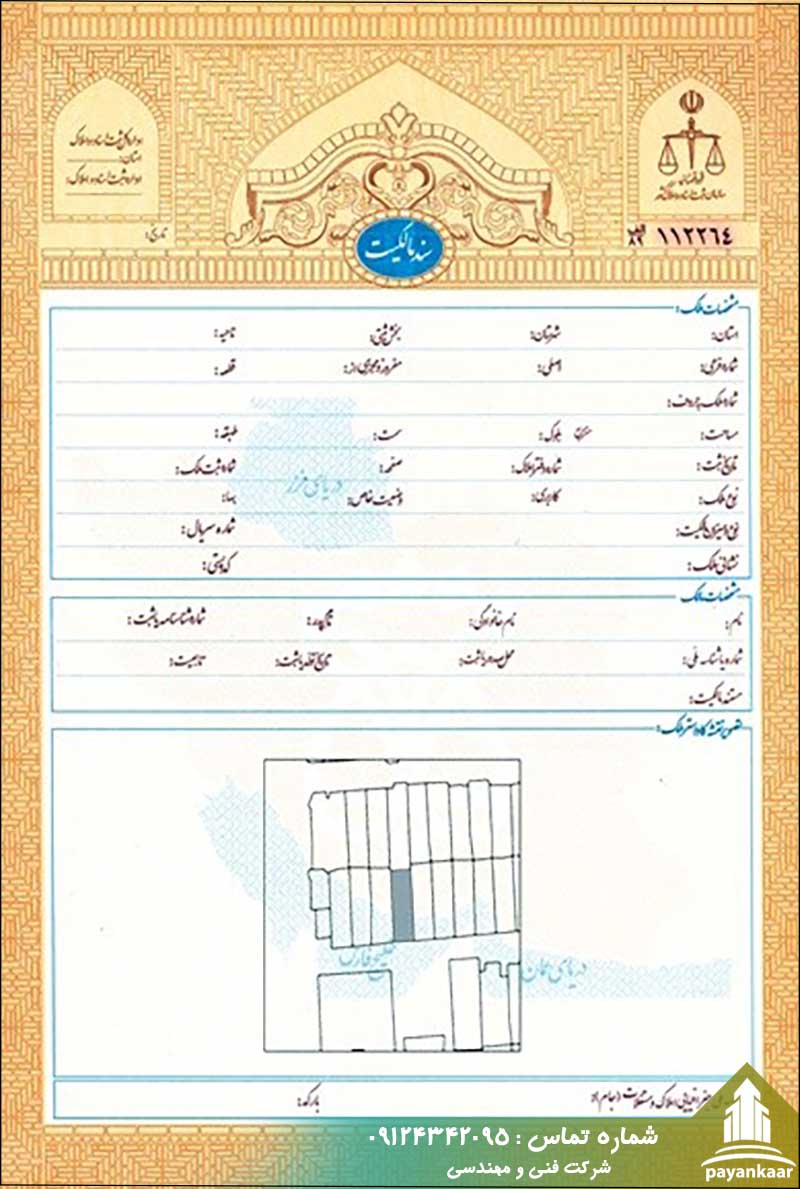 اداره کل ثبت اسناد و املاک
استان:
اداره ثبت اسناد و املاک:
تاریخ:
قوه قضائیه
سازمان ثبت اسناد و املاک کشور
۱۱۲۲۶۴
الف
۸۹
سند مالکیت
مشخصات ملک:
استان: شهرستان: بخش ثبتی: ناحیه:
شماره فرعی: اصلی: مفروز و مجزی از: قطعه:
شماره ملک به حروف:
مساحت: مترمربع بلوک: سمت: طبقه:
تاریخ ثبت: شماره دفتر املاک: صفحه: شماره ثبت ملک:
نوع ملک: کاربری: وضعیت خاص: بهاء:
نوع و میزان مالکیت: شماره سریال:
نشانی ملک: کد پستی:
دریای خزر
مشخصات مالک
نام: نام خانوادگی: نام پدر: شماره شناسنامه یا ثبت:
شماره یا شناسه ملی: محل صدور یا ثبت: تاریخ تولد یا ثبت: تابعیت:
مستند مالکیت:
نقشه کاداستر ملک:
خلیج فارس
دریای عمان
جغرافیایی املاک و مستغلات (جام): بارکد:
شماره تماس : ۰۹۱۲۴۳۴۲۰۹۵
شرکت فنی و مهندسی
payankaar